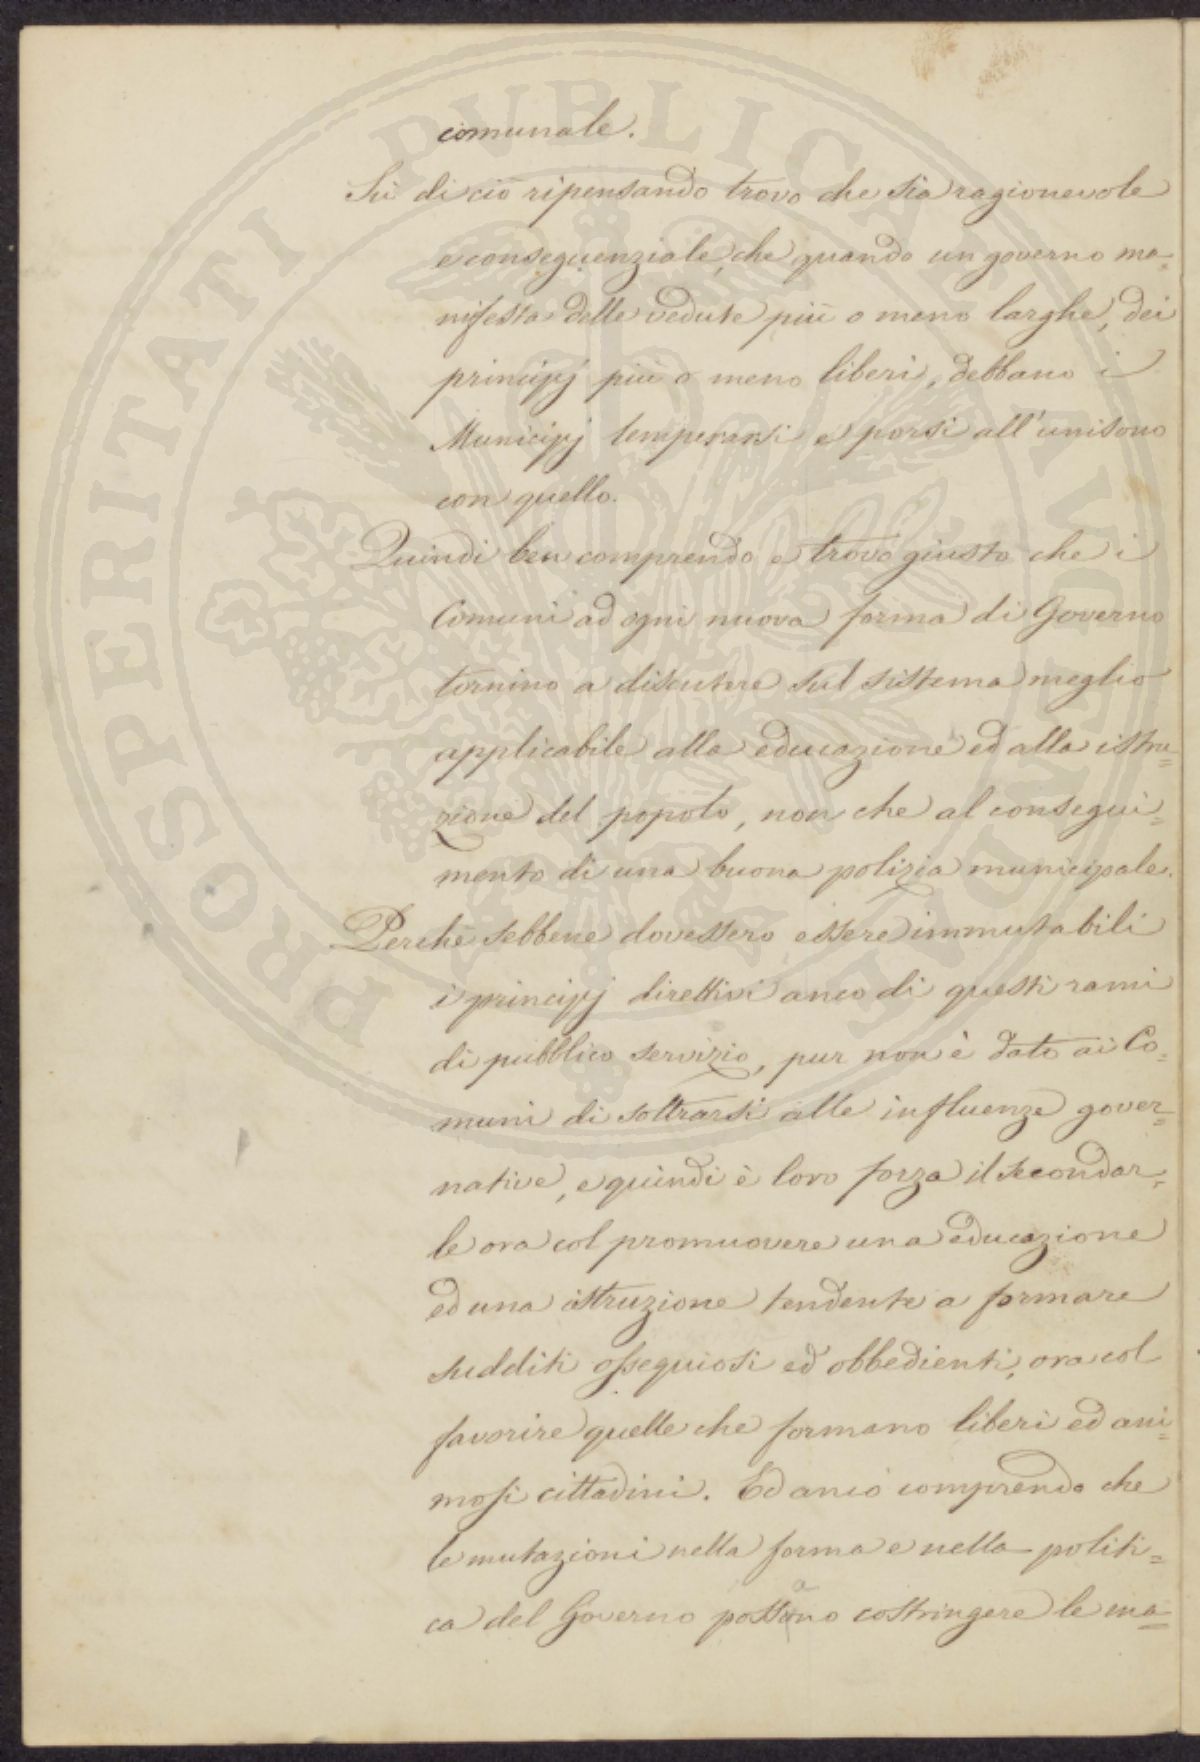 comunale.
Sù di ciò ripensando trovo che sia ragionevole
e consequenziale, che quando un governo ma=
nifesta delle vedute più o meno larghe, dei
principj più o meno liberi, debbano i
Municipj temperarsi e porsi all'unisono
con quello.
Quindi ben comprendo e trovo giusto che i
Comuni ad ogni nuova forma di Governo
tornino a discutere sul sistema meglio
applicabile alla educazione ed alla istru=
zione del popolo, non che al consegui=
mento di una buona polizia municipale.
Perchè sebbene dovessero essere immutabili
i principj direttivi anco di questi rami
di pubblico servizio, pur non è dato ai Co=
muni di sottrarsi alle influenze gover=
native, e quindi è loro forza il secondar=
le ora col promuovere una educazione
ed una istruzione tendente a formare
sudditi ossequiosi ed obbedienti, ora col
favorire quelle che formano liberi ed ani=
mosi cittadini. Ed anco comprendo che
le mutazioni nella forma e nella politi=
ca del Governo possano costringere le ma=
PROSPERITATI PVBLICAE AVGENDAE